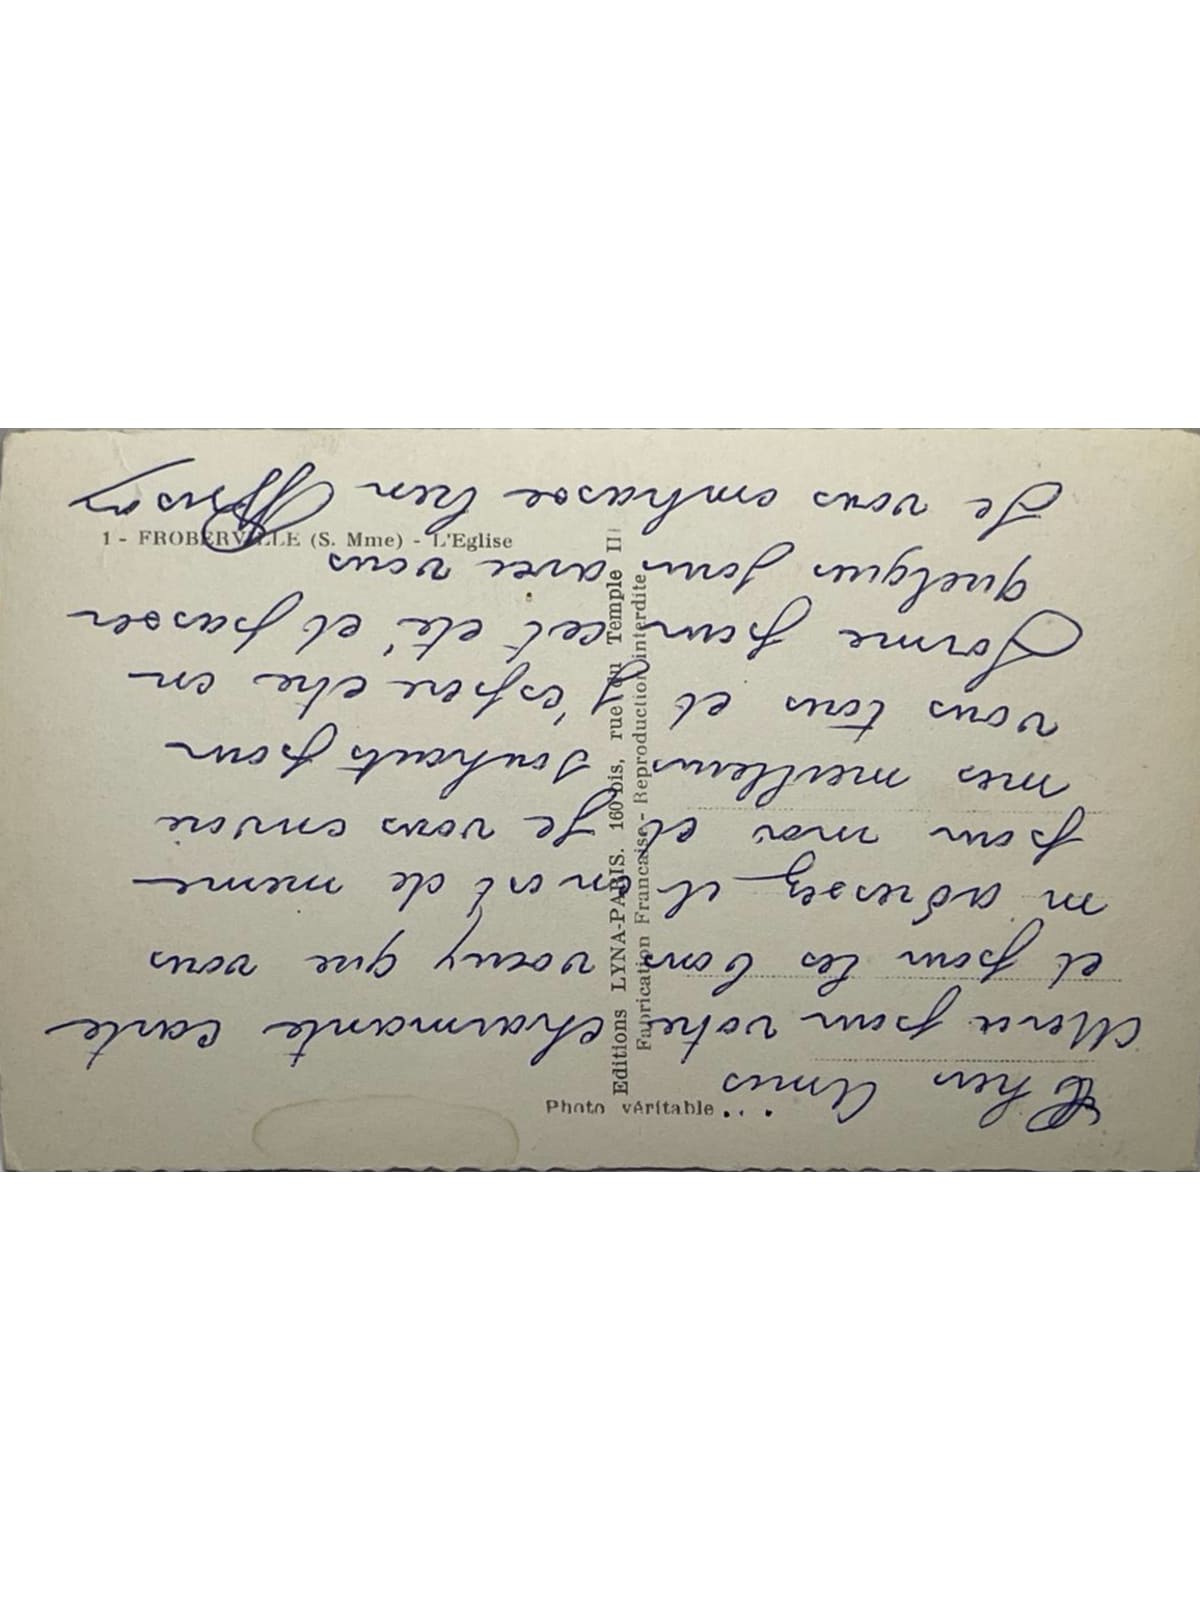 Chers Amis
Merci pour votre charmante carte
et pour les bons voeux que vous
m adressez et on est de meme
pour moi et Je vous envoie
mes meilleurs souhaits pour
vous tous et J'espere etre en
forme pour cet eté et passer
quelques jours avec vous
Je vous embrasse bien
1 - FROBERVILLE (S. Mme) - L'Eglise
Editions LYNA-PARIS. 160 bis, rue du Temple II
Fabrication Francaise - Reproduction interdite
Photo véritable...